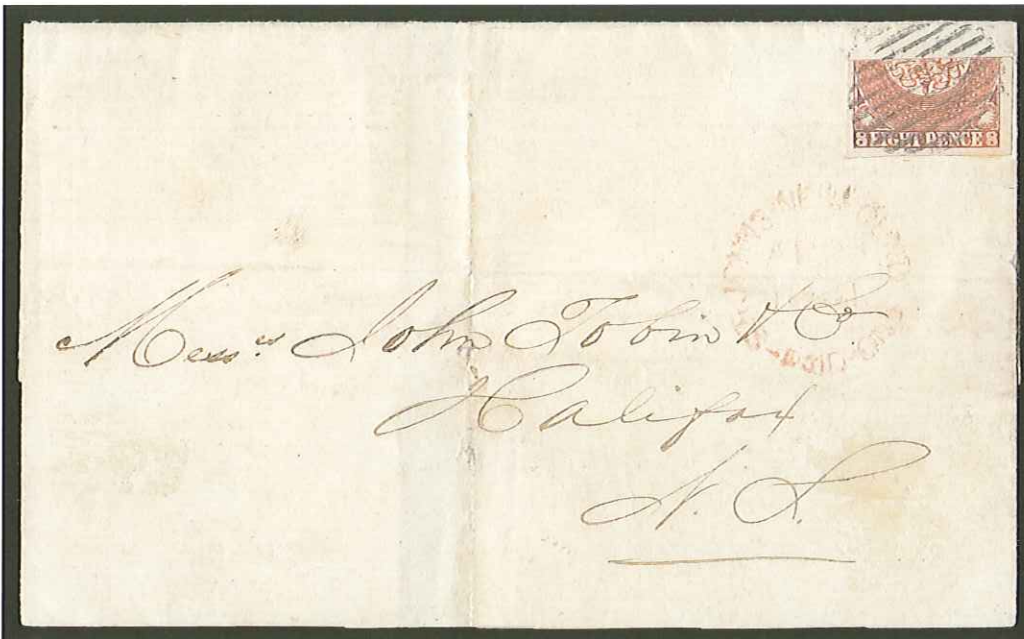 8 EIGHT PENCE 8
Mess.rs John Tobin & Co.
Halifax
N.S.